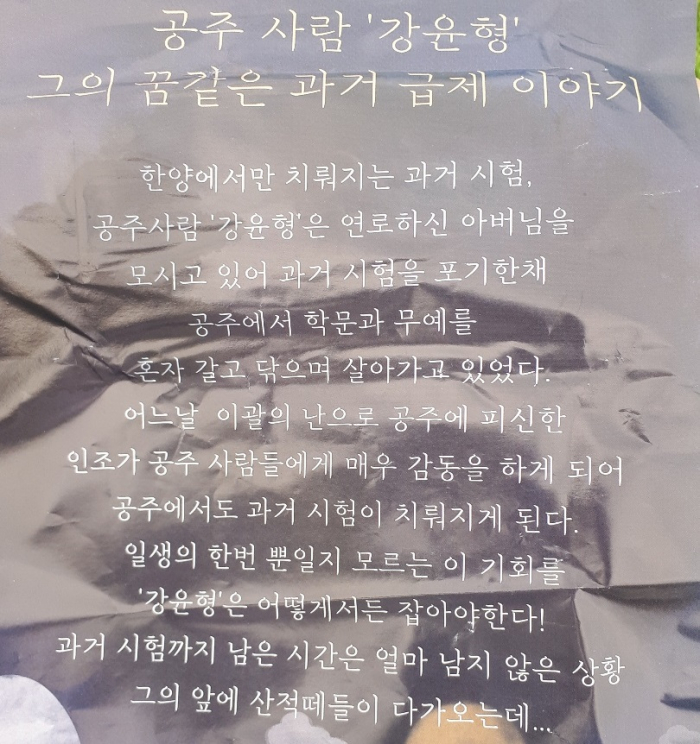 공주 사람 '강윤형'
그의 꿈같은 과거 급제 이야기
한양에서만 치뤄지는 과거 시험,
공주사람 '강윤형'은 연로하신 아버님을
모시고 있어 과거 시험을 포기한채
공주에서 학문과 무예를
혼자 갈고 닦으며 살아가고 있었다.
어느날 이괄의 난으로 공주에 피신한
인조가 공주 사람들에게 매우 감동을 하게 되어
공주에서도 과거 시험이 치뤄지게 된다.
일생의 한번 뿐일지 모르는 이 기회를
'강윤형'은 어떻게서든 잡아야한다!
과거 시험까지 남은 시간은 얼마 남지 않은 상황
그의 앞에 산적떼들이 다가오는데...